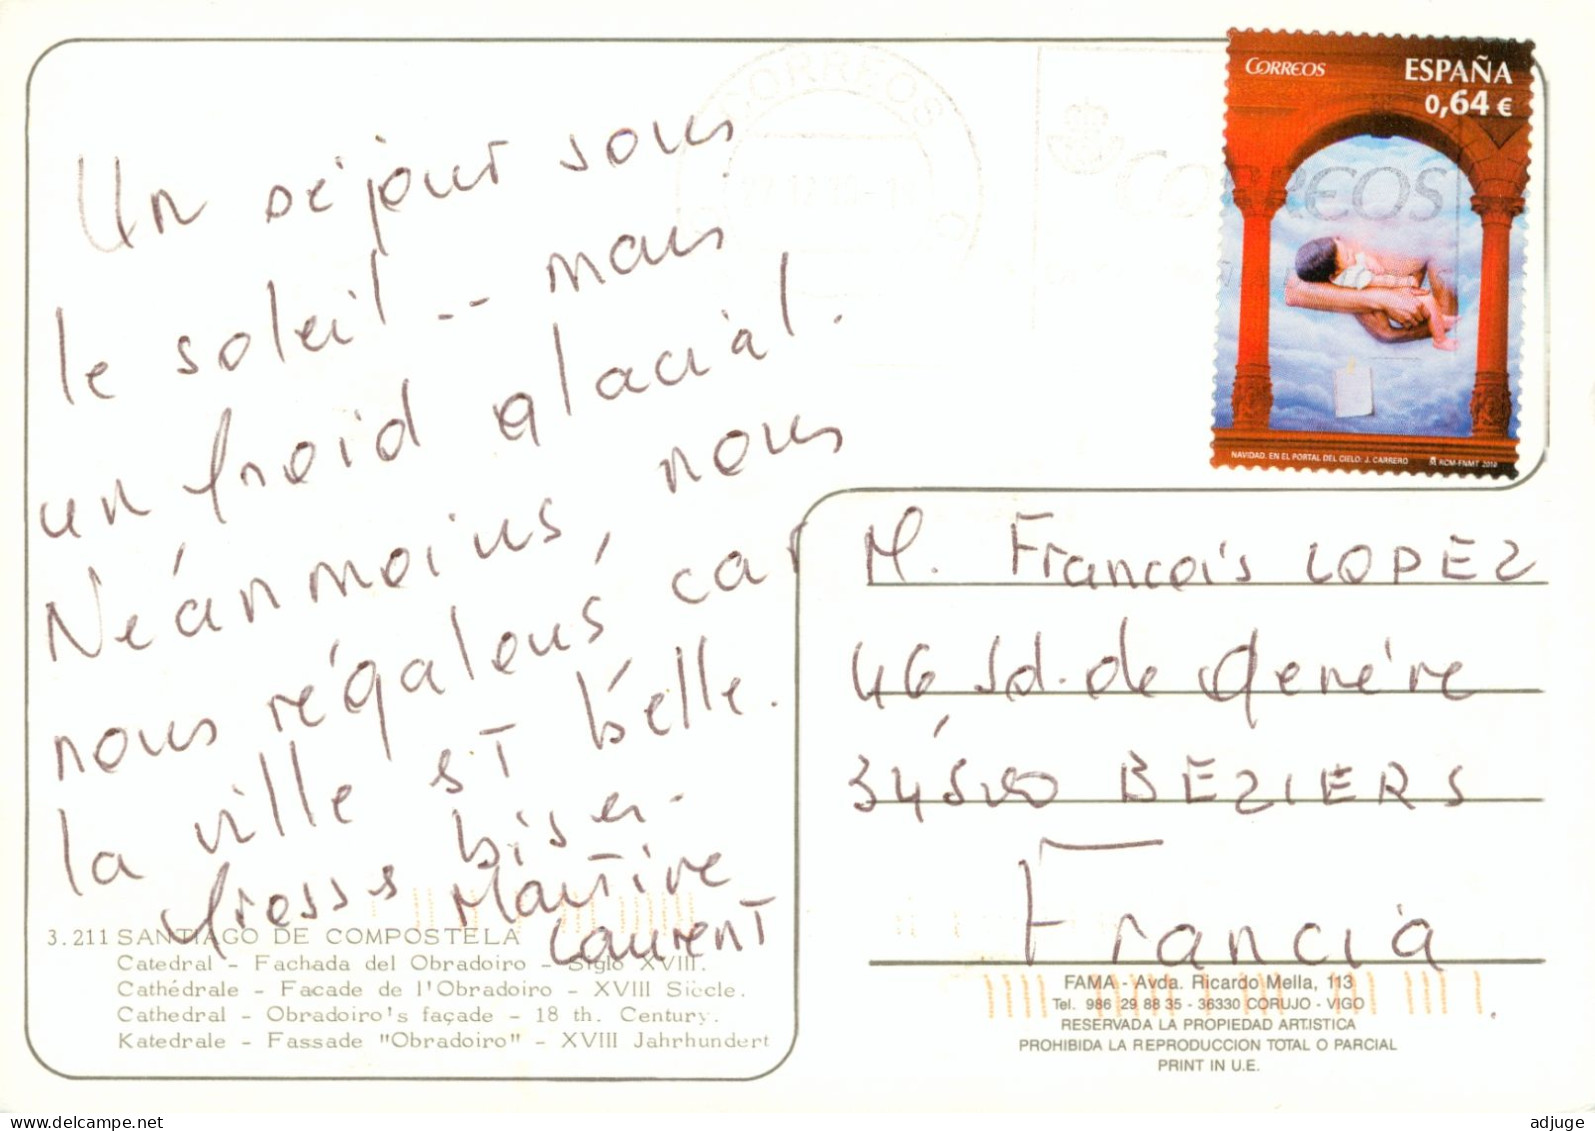 Un séjour sous
le soleil -- mais
un froid glacial.
Néanmoins, nous
nous régalons car
la ville est belle.
Grosses bises.
Martine
Laurent
CORREOS
CORREOS
CORREOS
ESPAÑA
0,64 €
NAVIDAD. EN EL PORTAL DEL CIELO. J. CARRERO
RCM-FNMT 2010
M. Francois LOPEZ
46 Bd. de Genève
34500 BEZIERS
Francia
3.211 SANTIAGO DE COMPOSTELA
Catedral - Fachada del Obradoiro - Siglo XVIII.
Cathédrale - Facade de l'Obradoiro - XVIII Siècle.
Cathedral - Obradoiro's façade - 18 th. Century.
Katedrale - Fassade "Obradoiro" - XVIII Jahrhundert
FAMA - Avda. Ricardo Mella, 113
Tel. 986 29 88 35 - 36330 CORUJO - VIGO
RESERVADA LA PROPIEDAD ARTISTICA
PROHIBIDA LA REPRODUCCION TOTAL O PARCIAL
PRINT IN U.E.
adjuge